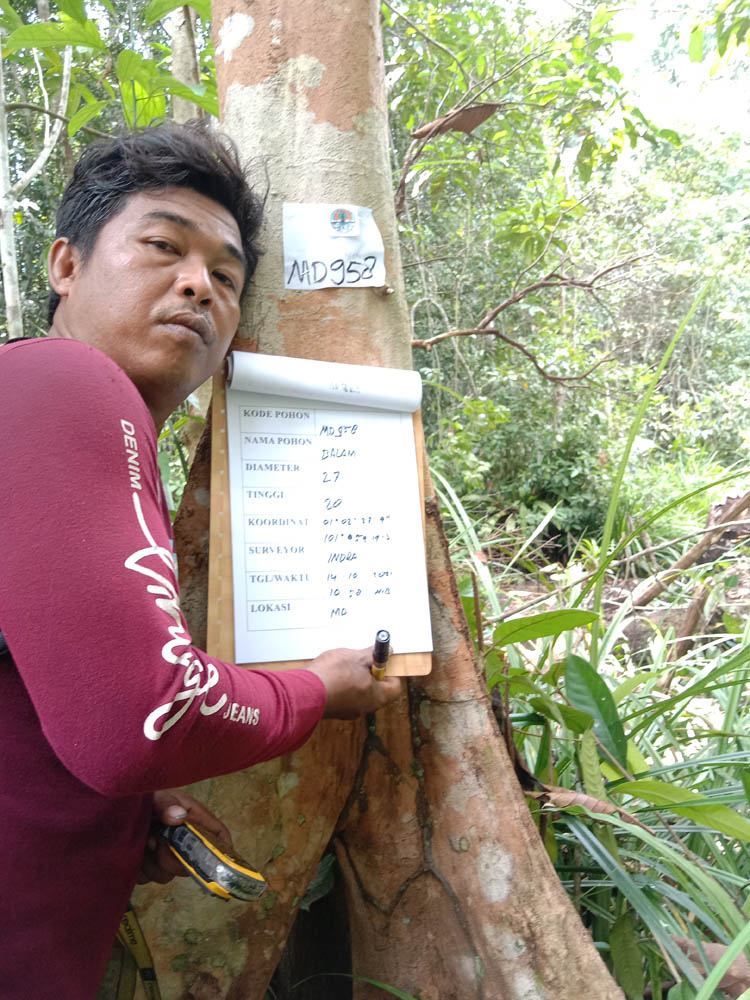 MD958
KODE POHON MD958
NAMA POHON BALAM
DIAMETER 27
TINGGI 20
KOORDINAT
SURVEYOR INDRA
TGL/WAKTU 14 10 2021
10 50 WIB
LOKASI MD
DENIM
JEANS